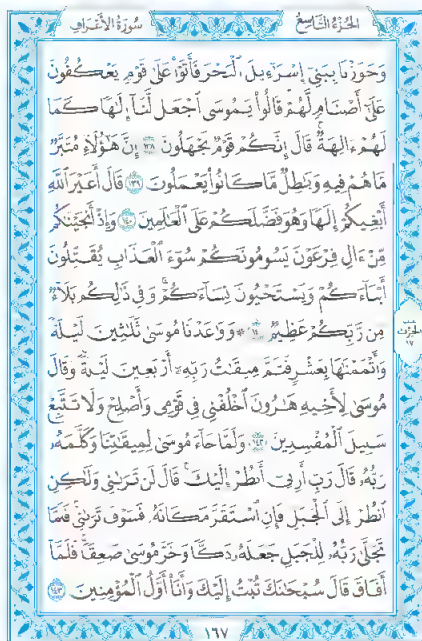 الجُزءُ التَّاسِعُ
سُورَةُ الأَعْرَافِ
وَجَٰوَزْنَا بِبَنِىٓ إِسْرَٰٓءِيلَ ٱلْبَحْرَ فَأَتَوْا۟ عَلَىٰ قَوْمٍ يَعْكُفُونَ
عَلَىٰٓ أَصْنَامٍ لَّهُمْ قَالُوا۟ يَٰمُوسَى ٱجْعَل لَّنَآ إِلَٰهًا كَمَا
لَهُمْ ءَالِهَةٌ قَالَ إِنَّكُمْ قَوْمٌ تَجْهَلُونَ ١٣٨ إِنَّ هَٰٓؤُلَآءِ مُتَبَّرٌ
مَّا هُمْ فِيهِ وَبَٰطِلٌ مَّا كَانُوا۟ يَعْمَلُونَ ١٣٩ قَالَ أَغَيْرَ ٱللَّهِ
أَبْغِيكُمْ إِلَٰهًا وَهُوَ فَضَّلَكُمْ عَلَى ٱلْعَٰلَمِينَ ١٤٠ وَإِذْ أَنجَيْنَٰكُم
مِّنْ ءَالِ فِرْعَوْنَ يَسُومُونَكُمْ سُوٓءَ ٱلْعَذَابِ يُقَتِّلُونَ
أَبْنَآءَكُمْ وَيَسْتَحْيُونَ نِسَآءَكُمْ وَفِى ذَٰلِكُم بَلَآءٌ
مِّن رَّبِّكُمْ عَظِيمٌ ١٤١ ۞ وَوَٰعَدْنَا مُوسَىٰ ثَلَٰثِينَ لَيْلَةً
وَأَتْمَمْنَٰهَا بِعَشْرٍ فَتَمَّ مِيقَٰتُ رَبِّهِۦٓ أَرْبَعِينَ لَيْلَةً وَقَالَ
مُوسَىٰ لِأَخِيهِ هَٰرُونَ ٱخْلُفْنِى فِى قَوْمِى وَأَصْلِحْ وَلَا تَتَّبِعْ
سَبِيلَ ٱلْمُفْسِدِينَ ١٤٢ وَلَمَّا جَآءَ مُوسَىٰ لِمِيقَٰتِنَا وَكَلَّمَهُۥ
رَبُّهُۥ قَالَ رَبِّ أَرِنِىٓ أَنظُرْ إِلَيْكَ قَالَ لَن تَرَىٰنِى وَلَٰكِنِ
ٱنظُرْ إِلَى ٱلْجَبَلِ فَإِنِ ٱسْتَقَرَّ مَكَانَهُۥ فَسَوْفَ تَرَىٰنِى فَلَمَّا
تَجَلَّىٰ رَبُّهُۥ لِلْجَبَلِ جَعَلَهُۥ دَكًّا وَخَرَّ مُوسَىٰ صَعِقًا فَلَمَّآ
أَفَاقَ قَالَ سُبْحَٰنَكَ تُبْتُ إِلَيْكَ وَأَنَا۠ أَوَّلُ ٱلْمُؤْمِنِينَ ١٤٣
الحِزْبُ
١٧
١٦٧